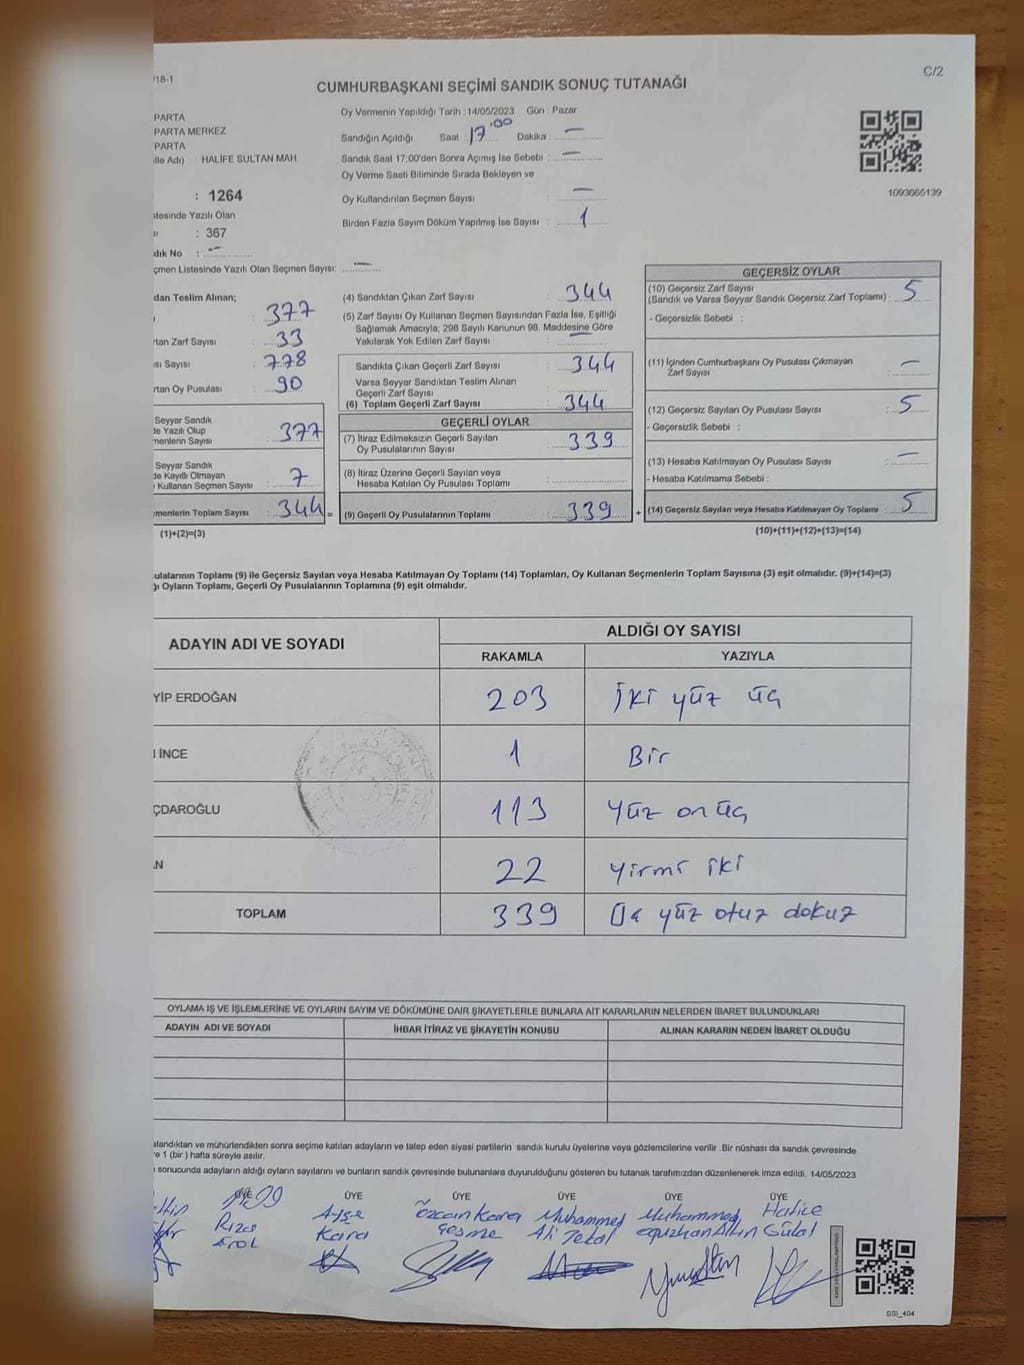 C/2
718-1
CUMHURBAŞKANI SEÇİMİ SANDIK SONUÇ TUTANAĞI
PARTA
PARTA MERKEZ
PARTA
lle Adı) HALİFE SULTAN MAH.
: 1264
: 367
dık No : –
çmen Listesinde Yazılı Olan Seçmen Sayısı: –
Oy Vermenin Yapıldığı Tarih : 14/05/2023 Gün : Pazar
Sandığın Açıldığı Saat : 17:00 Dakika : –
Sandık Saat 17:00'den Sonra Açımış İse Sebebi : –
Oy Verme Saati Bitiminde Sırada Bekleyen ve
Oy Kullandırılan Seçmen Sayısı : –
Birden Fazla Sayım Döküm Yapılmış İse Sayısı : 1
1093665139
dan Teslim Alınan;
: 377
rtan Zarf Sayısı : 33
sı Sayısı : 778
rtan Oy Pusulası : 90
Seyyar Sandık
de Yazılı Olup
menlerin Sayısı : 377
Seyyar Sandık
de Kayıtlı Olmayan
Kullanan Seçmen Sayısı : 7
menlerin Toplam Sayısı : 344 =
(1)+(2)=(3)
(4) Sandıktan Çıkan Zarf Sayısı : 344
(5) Zarf Sayısı Oy Kullanan Seçmen Sayısından Fazla İse, Eşitliği
Sağlamak Amacıyla; 298 Sayılı Kanunun 98. Maddesine Göre
Yakılarak Yok Edilen Zarf Sayısı : –
Sandıkta Çıkan Geçerli Zarf Sayısı : 344
Varsa Seyyar Sandıktan Teslim Alınan
Geçerli Zarf Sayısı
(6) Toplam Geçerli Zarf Sayısı : 344
GEÇERLİ OYLAR
(7) İtiraz Edilmeksizin Geçerli Sayılan
Oy Pusulalarının Sayısı : 339
(8) İtiraz Üzerine Geçerli Sayılan veya
Hesaba Katılan Oy Pusulası Toplamı :
(9) Geçerli Oy Pusulalarının Toplamı : 339 +
GEÇERSİZ OYLAR
(10) Geçersiz Zarf Sayısı
(Sandık ve Varsa Seyyar Sandık Geçersiz Zarf Toplamı) : 5
- Geçersizlik Sebebi :
(11) İçinden Cumhurbaşkanı Oy Pusulası Çıkmayan
Zarf Sayısı : –
(12) Geçersiz Sayılan Oy Pusulası Sayısı : 5
- Geçersizlik Sebebi :
(13) Hesaba Katılmayan Oy Pusulası Sayısı : –
- Hesaba Katılmama Sebebi :
(14) Geçersiz Sayılan veya Hesaba Katılmayan Oy Toplamı : 5
(10)+(11)+(12)+(13)=(14)
usulalarının Toplamı (9) ile Geçersiz Sayılan veya Hesaba Katılmayan Oy Toplamı (14) Toplamları, Oy Kullanan Seçmenlerin Toplam Sayısına (3) eşit olmalıdır. (9)+(14)=(3)
ğı Oyların Toplamı, Geçerli Oy Pusulalarının Toplamına (9) eşit olmalıdır.
ADAYIN ADI VE SOYADI ALDIĞI OY SAYISI
RAKAMLA YAZIYLA
YİP ERDOĞAN 203 İki yüz üç
İNCE 1 Bir
ÇDAROĞLU 113 Yüz on üç
AN 22 Yirmi iki
TOPLAM 339 Üç yüz otuz dokuz
OYLAMA İŞ VE İŞLEMLERİNE VE OYLARIN SAYIM VE DÖKÜMÜNE DAİR ŞİKAYETLERLE BUNLARA AİT KARARLARIN NELERDEN İBARET BULUNDUKLARI
ADAYIN ADI VE SOYADI İHBAR İTİRAZ VE ŞİKAYETİN KONUSU ALINAN KARARIN NEDEN İBARET OLDUĞU
alandıktan ve mühürlendikten sonra seçime katılan adayların ve talep eden siyasi partilerin sandık kurulu üyelerine veya gözlemcilerine verilir. Bir nüshası da sandık çevresinde
re 1 (bir) hafta süreyle asılır.
sonucunda adayların aldığı oyların sayılarını ve bunların sandık çevresinde bulunanlara duyurulduğunu gösteren bu tutanak tarafımızdan düzenlenerek imza edildi. 14/05/2023
ÜYE ÜYE ÜYE ÜYE ÜYE ÜYE
Rıza Erol
Ayşe Kara
Özcan Kara Çeşme
Muhammed Ali Tekal
Muhammed Oğuzhan Altın
Hatice Gülal
SSI_404